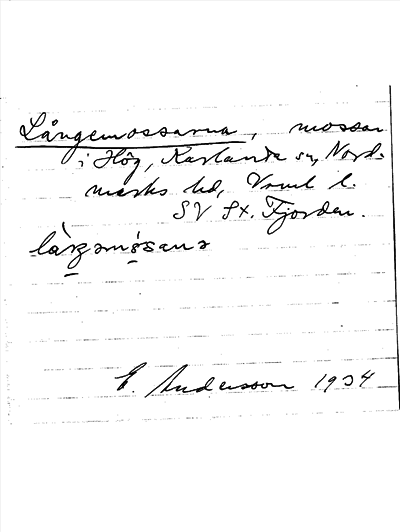 Långemossarna, mossar
i Hög, Karlanda sn, Nord-
marks hd, Vrml l.
SV Sx. Fjorden.
E. Andersson 1934